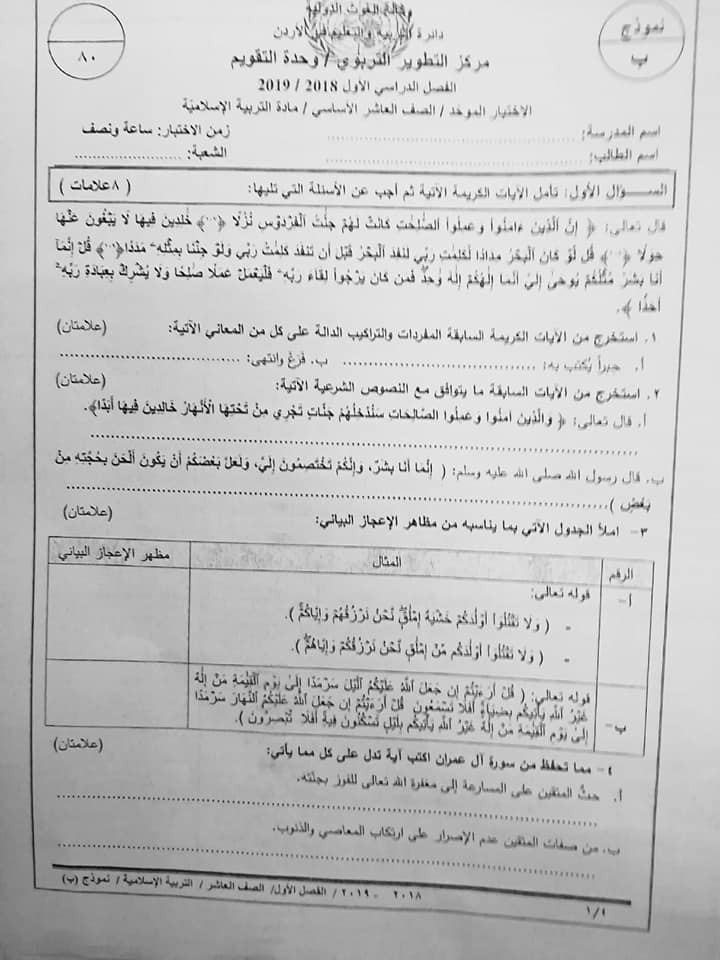 وكالة الغوث الدولية
دائرة التربية والتعليم في الأردن
مركز التطوير التربوي / وحدة التقويم
نموذج
ب
٨٠
الفصل الدراسي الأول 2018 / 2019
الاختبار الموحد / الصف العاشر الأساسي / مادة التربية الإسلامية
اسم المدرسة: ........................ زمن الاختبار: ساعة ونصف
اسم الطالب: ........................ الشعبة: ........................
الســؤال الأول: تأمل الآيات الكريمة الآتية ثم أجب عن الأسئلة التي تليها: (٨علامات )
قال تعالى: ﴿ إِنَّ ٱلَّذِينَ ءَامَنُواْ وَعَمِلُواْ ٱلصَّٰلِحَٰتِ كَانَتْ لَهُمْ جَنَّٰتُ ٱلْفِرْدَوْسِ نُزُلًا ﴿١٠٧﴾ خَٰلِدِينَ فِيهَا لَا يَبْغُونَ عَنْهَا
حِوَلًا ﴿١٠٨﴾ قُل لَّوْ كَانَ ٱلْبَحْرُ مِدَادًا لِّكَلِمَٰتِ رَبِّي لَنَفِدَ ٱلْبَحْرُ قَبْلَ أَن تَنفَدَ كَلِمَٰتُ رَبِّي وَلَوْ جِئْنَا بِمِثْلِهِ مَدَدًا﴿١٠٩﴾ قُلْ إِنَّمَآ
أَنَا بَشَرٌ مِّثْلُكُمْ يُوحَىٰ إِلَيَّ أَنَّمَآ إِلَٰهُكُمْ إِلَٰهٌ وَٰحِدٌ فَمَن كَانَ يَرْجُواْ لِقَآءَ رَبِّهِ فَلْيَعْمَلْ عَمَلًا صَٰلِحًا وَلَا يُشْرِكْ بِعِبَادَةِ رَبِّهِ
أَحَدًا ﴾.
١. استخرج من الآيات الكريمة السابقة المفردات والتراكيب الدالة على كل من المعاني الآتية: (علامتان)
أ. حبراً يُكتب به: ........................ ب. فَرَغَ وانتهى: ........................
٢. استخرج من الآيات السابقة ما يتوافق مع النصوص الشرعية الآتية: (علامتان)
أ. قال تعالى: ﴿ وَالَّذِينَ آمَنُوا وَعَمِلُوا الصَّالِحَاتِ سَنُدْخِلُهُمْ جَنَّاتٍ تَجْرِي مِنْ تَحْتِهَا الْأَنْهَارُ خَالِدِينَ فِيهَا أَبَدًا﴾.
........................
ب. قال رسول الله صلى الله عليه وسلم: ( إِنَّمَا أَنَا بَشَرٌ، وَإِنَّكُمْ تَخْتَصِمُونَ إِلَيَّ، وَلَعَلَّ بَعْضَكُمْ أَنْ يَكُونَ أَلْحَنَ بِحُجَّتِهِ مِنْ
بَعْضٍ )........................
٣- املأ الجدول الآتي بما يناسبه من مظاهر الإعجاز البياني: (علامتان)
الرقم المثال مظهر الإعجاز البياني
أ- قوله تعالى:
- ( وَلَا تَقْتُلُوٓاْ أَوْلَٰدَكُمْ خَشْيَةَ إِمْلَٰقٍ نَّحْنُ نَرْزُقُهُمْ وَإِيَّاكُمْ ).
- ( وَلَا تَقْتُلُوٓاْ أَوْلَٰدَكُم مِّنْ إِمْلَٰقٍ نَّحْنُ نَرْزُقُكُمْ وَإِيَّاهُمْ ).
ب- قوله تعالى: ( قُلْ أَرَءَيْتُمْ إِن جَعَلَ ٱللَّهُ عَلَيْكُمُ ٱلَّيْلَ سَرْمَدًا إِلَىٰ يَوْمِ ٱلْقِيَٰمَةِ مَنْ إِلَٰهٌ
غَيْرُ ٱللَّهِ يَأْتِيكُم بِضِيَآءٍ أَفَلَا تَسْمَعُونَ قُلْ أَرَءَيْتُمْ إِن جَعَلَ ٱللَّهُ عَلَيْكُمُ ٱلنَّهَارَ سَرْمَدًا
إِلَىٰ يَوْمِ ٱلْقِيَٰمَةِ مَنْ إِلَٰهٌ غَيْرُ ٱللَّهِ يَأْتِيكُم بِلَيْلٍ تَسْكُنُونَ فِيهِ أَفَلَا تُبْصِرُونَ ).
٤- مما تحفظ من سورة آل عمران اكتب آية تدل على كل مما يأتي: (علامتان)
أ. حثُّ المتقين على المسارعة إلى مغفرة الله تعالى للفوز بجنّته.
........................
ب. من صفات المتقين عدم الإصرار على ارتكاب المعاصي والذنوب.
........................
٢٠١٨ - ٢٠١٩ / الفصل الأول/ الصف العاشر / التربية الإسلامية / نموذج (ب)
١/٤